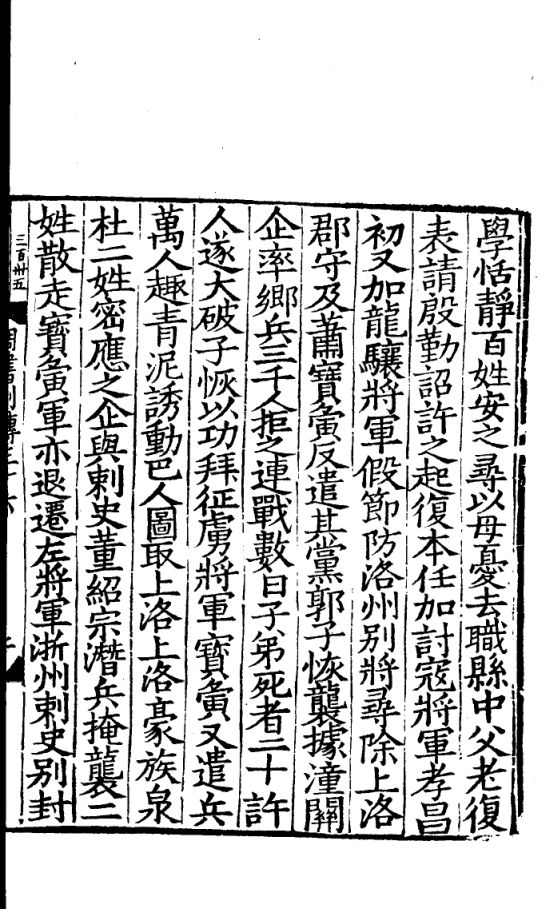 學恬靜百姓安之尋以母憂去職縣中父老復
表請殷勤詔許之起復本任加討寇將軍孝昌
初又加龍驤將軍假節防洛州別將尋除上洛
郡守及蕭寶夤反遣其黨郭子恢襲據潼關
企率鄉兵三千人拒之連戰數日子弟死者二十許
人遂大破子恢以功拜征虜將軍寶夤又遣兵
萬人趣青泥誘動巴人圖取上洛上洛豪族泉
杜二姓密應之企與刺史董紹宗潛兵掩襲二
姓散走寶夤軍亦退遷左將軍浙州刺史別封
三百卅五